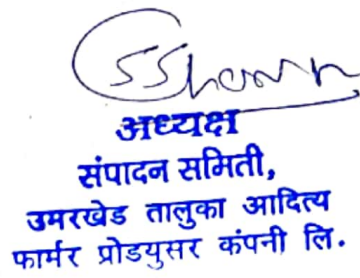 अध्यक्ष
संपादन समिती,
उमरखेड तालुका आदित्य
फार्मर प्रोडयुसर कंपनी लि.